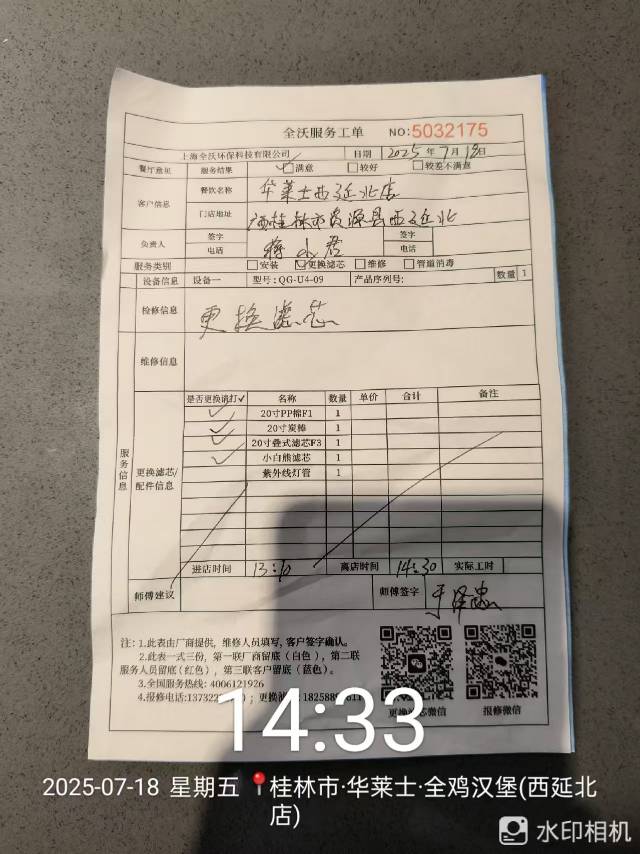 全沃服务工单 NO:5032175
上海全沃环保科技有限公司 日期 2025年7月18日
餐厅意见 服务结果 ☑满意 □较好 □较差不满意
客户信息 餐饮名称 华莱士西延北店
门店地址 广西桂林市资源县西延北
负责人 签字 蒋小君 签字
电话 电话
服务类别 □安装 ☑更换滤芯 □维修 □管道消毒
设备信息 设备一 型号:QG-U4-09 产品序列号: 数量 1
检修信息 更换滤芯
维修信息
服务信息
更换滤芯/配件信息
是否更换请打✓ 名称 数量 单价 合计 备注
✓ 20寸PP棉F1 1
✓ 20寸炭棒 1
✓ 20寸叠式滤芯F3 1
✓ 小白熊滤芯 1
紫外线灯管 1
进店时间 13:10 离店时间 14:30 实际工时
师傅建议 师傅签字
注:1.此表由厂商提供,维修人员填写,客户签字确认。
2.此表一式三份,第一联厂商留底(白色),第二联
服务人员留底(红色),第三联客户留底(蓝色)。
3.全国服务热线:4006121926
4.报修电话:13732
更换滤芯微信 报修微信
14:33
2025-07-18 星期五 桂林市·华莱士·全鸡汉堡(西延北
店)
水印相机